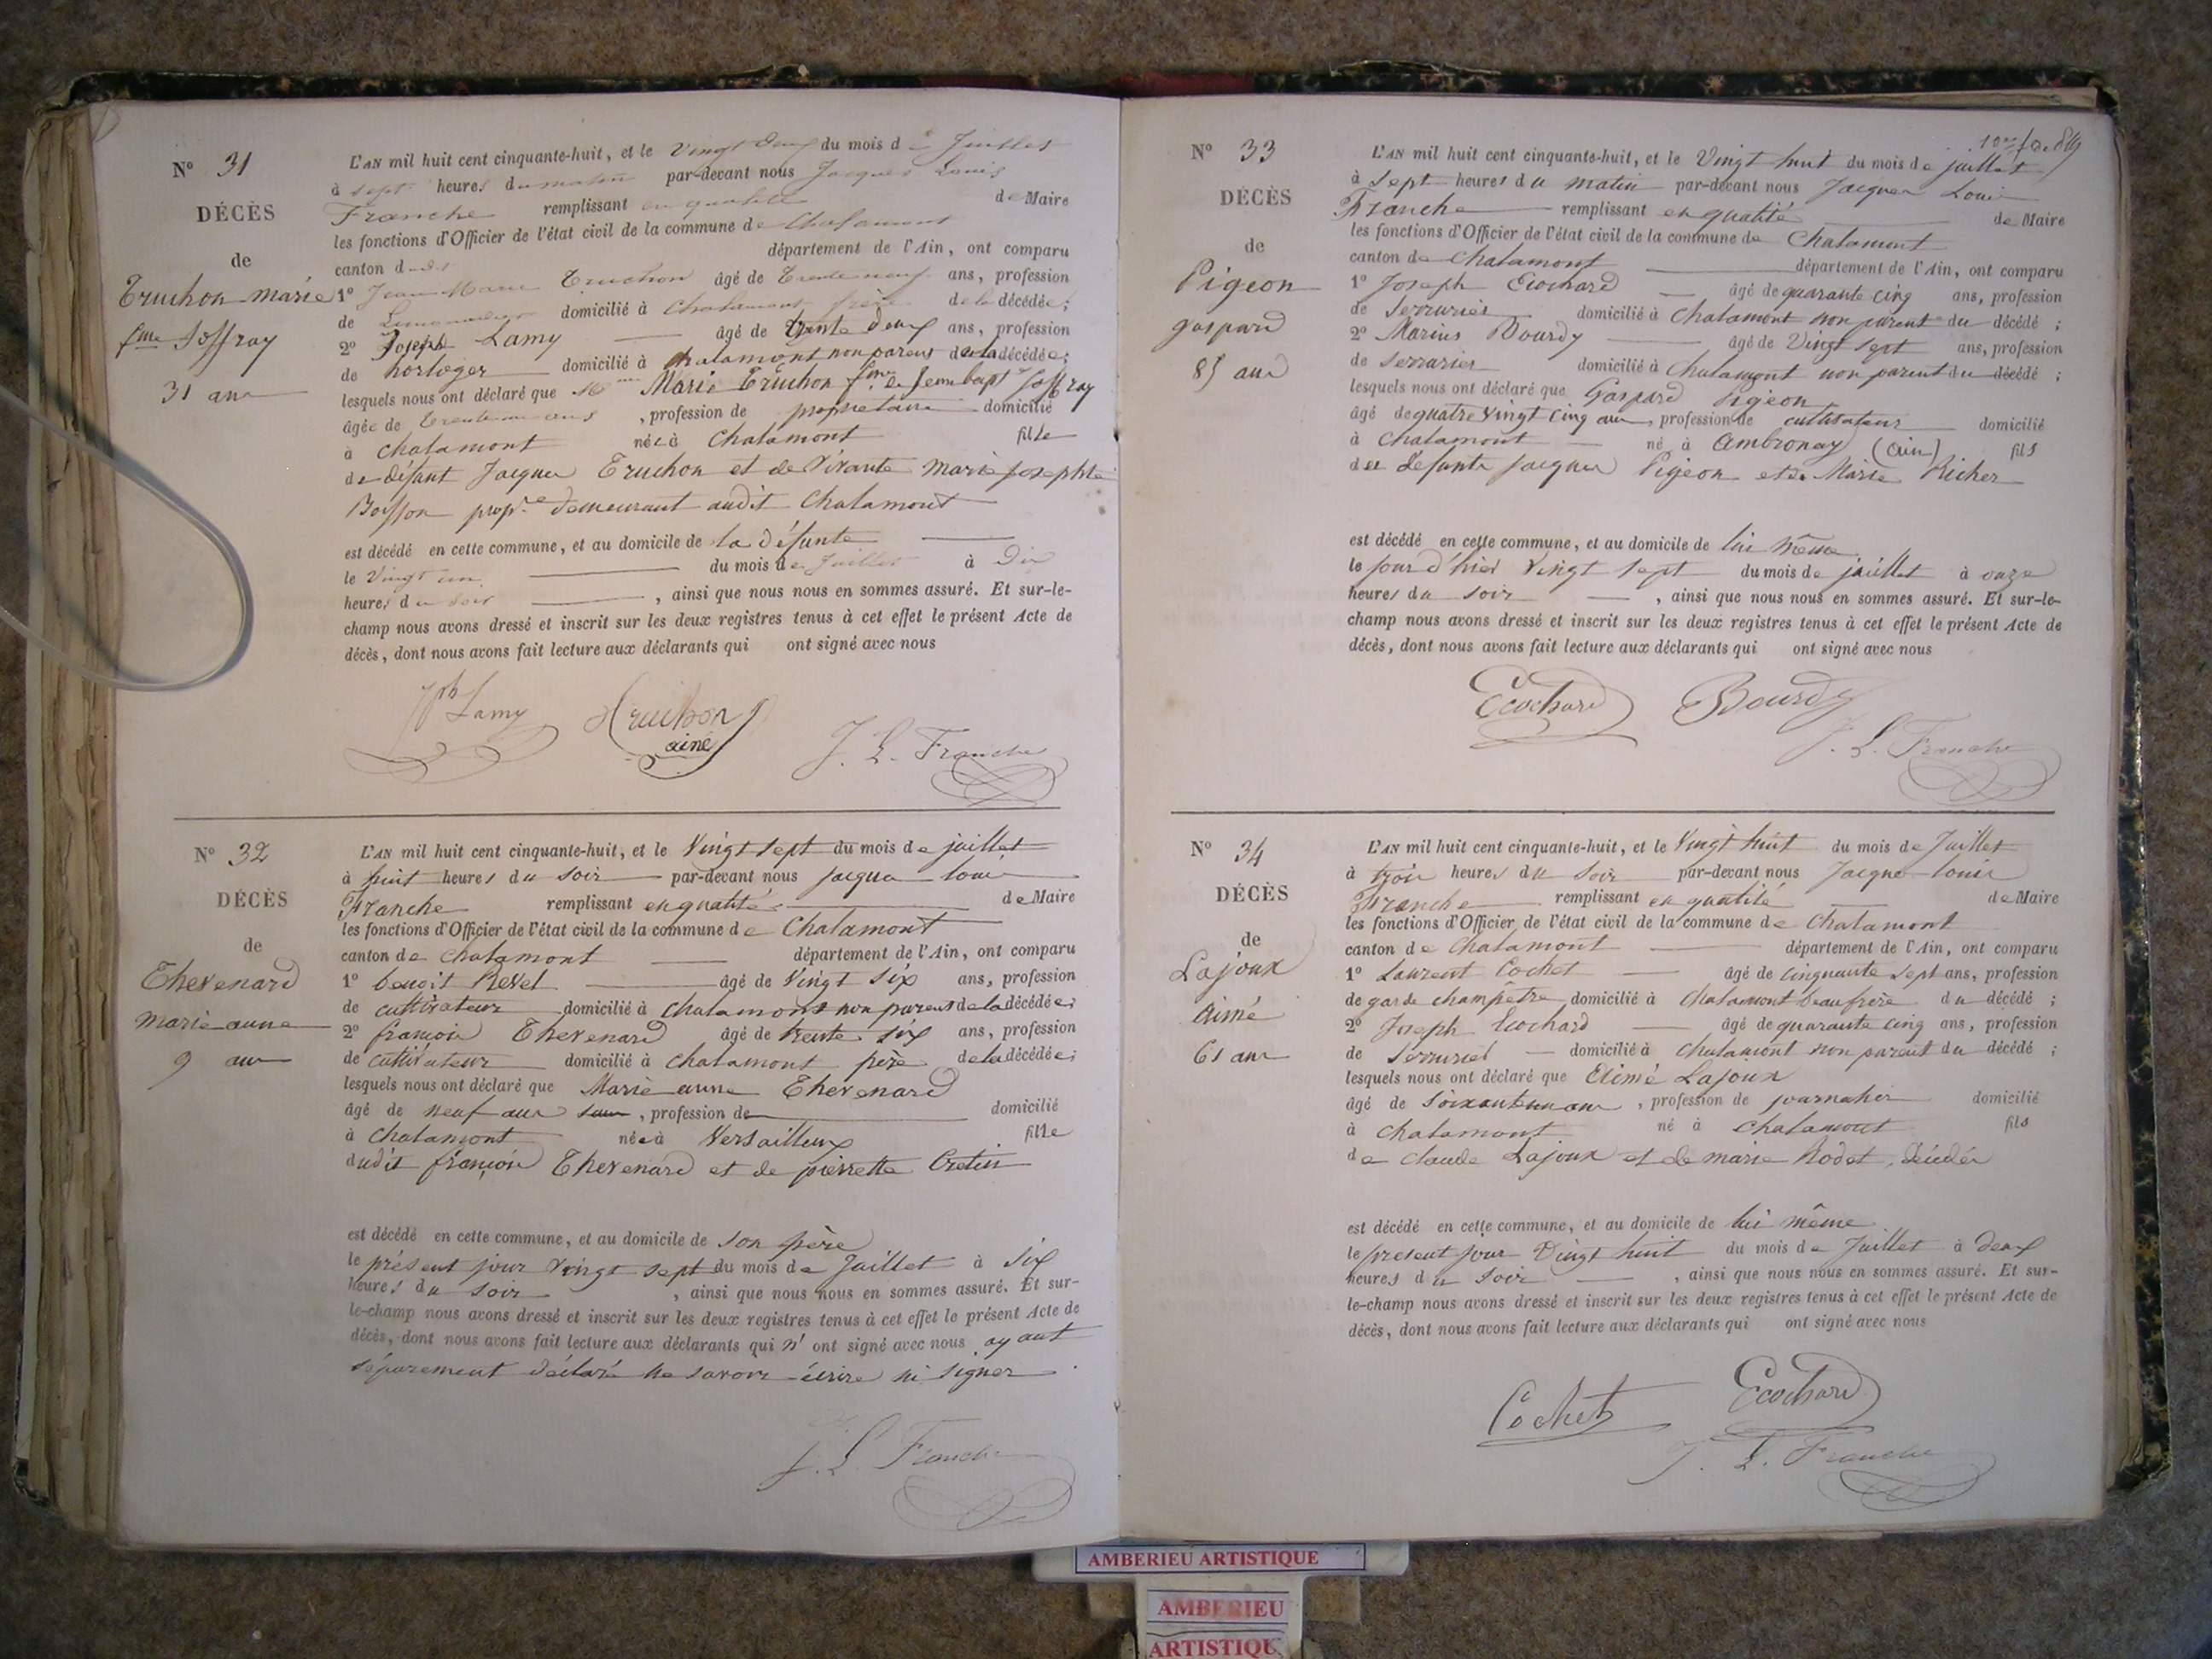 N° 31
DÉCÈS
de
Truchon marie
fme Joffray
31 ans
L'AN mil huit cent cinquante-huit, et le Vingt deux du mois de Juillet
à sept heures du matin par-devant nous Jacques Louis
Franche remplissant en qualité de Maire
les fonctions d'Officier de l'état civil de la commune de Chalamont
canton dudit département de l'Ain, ont comparu
1° Jean Marie Truchon âgé de Trente neuf ans, profession
de domicilié à Chalamont frère de la décédée;
2° Joseph Lamy âgé de trente deux ans, profession
de horloger domicilié à chalamont non parent de la décédée;
lesquels nous ont déclaré que Marie Truchon fme de Jean bapt Joffray
âgée de trente un ans, profession de propriétaire domicilié
à chalamont née à Chalamont fille
de défunt Jacques Truchon et de Vivante marie josephte
Boisson propre demeurant audit Chalamont
est décédé en cette commune, et au domicile de la défunte
le Vingt un du mois de Juillet à Dix
heures du soir, ainsi que nous nous en sommes assuré. Et sur-le-
champ nous avons dressé et inscrit sur les deux registres tenus à cet effet le présent Acte de
décès, dont nous avons fait lecture aux déclarants qui ont signé avec nous
Jph Lamy Truchon
ainé
J. L. Franche
N° 32
DÉCÈS
de
Thevenard
marie anne
9 ans
L'AN mil huit cent cinquante-huit, et le Vingt sept du mois de juillet
à huit heures du soir par-devant nous jacques louis
Franche remplissant en qualité de Maire
les fonctions d'Officier de l'état civil de la commune de Chalamont
canton de chalamont département de l'Ain, ont comparu
1° benoit Revel âgé de Vingt six ans, profession
de cultivateur domicilié à chalamont non parent de la décédée;
2° françois Thevenard âgé de trente six ans, profession
de cultivateur domicilié à chalamont père de la décédée;
lesquels nous ont déclaré que Marie anne Thevenard
âgé de neuf ans, profession de domicilié
à chalamont née à Versailleux fille
dudit françois Thevenard et de pierrette Cretin
est décédé en cette commune, et au domicile de son père
le présent jour vingt sept du mois de Juillet à six
heures du soir, ainsi que nous nous en sommes assuré. Et sur-
le-champ nous avons dressé et inscrit sur les deux registres tenus à cet effet le présent Acte de
décès, dont nous avons fait lecture aux déclarants qui n' ont signé avec nous ayant
séparement déclaré ne savoir écrire ni signer
J. L. Franche
N° 33
DÉCÈS
de
Pigeon
gaspard
85 ans
L'AN mil huit cent cinquante-huit, et le Vingt huit du mois de juillet
à sept heures du matin par-devant nous Jacques Louis
Franche remplissant en qualité de Maire
les fonctions d'Officier de l'état civil de la commune de Chalamont
canton de Chalamont département de l'Ain, ont comparu
1° Joseph Ecochard âgé de quarante cinq ans, profession
de Serrurier domicilié à Chalamont non parent du décédé;
2° Marius Bourdy âgé de Vingt sept ans, profession
de serrurier domicilié à Chalamont non parent du décédé;
lesquels nous ont déclaré que Gaspard Pigeon
âgé de quatre vingt cinq ans, profession de cultivateur domicilié
à Chalamont né à ambronay (ain) fils
des défunts jacques Pigeon et de Marie Richer
est décédé en cette commune, et au domicile de lui même
le jour d'hier Vingt sept du mois de juillet à onze
heures du soir, ainsi que nous nous en sommes assuré. Et sur-le-
champ nous avons dressé et inscrit sur les deux registres tenus à cet effet le présent Acte de
décès, dont nous avons fait lecture aux déclarants qui ont signé avec nous
Ecochard Bourdy
J. L. Franche
N° 34
DÉCÈS
de
Lajoux
Aimé
61 ans
L'AN mil huit cent cinquante-huit, et le Vingt huit du mois de Juillet
à trois heures du soir par-devant nous Jacques louis
Franche remplissant en qualité de Maire
les fonctions d'Officier de l'état civil de la commune de Chalamont
canton de Chalamont département de l'Ain, ont comparu
1° Laurent Cochet âgé de cinquante sept ans, profession
de garde champêtre domicilié à Chalamont beaufrère du décédé;
2° Joseph Ecochard âgé de quarante cinq ans, profession
de serrurier domicilié à Chalamont non parent du décédé;
lesquels nous ont déclaré que Aimé Lajoux
âgé de soixante un ans, profession de journalier domicilié
à chalamont né à chalamont fils
de claude Lajoux et de marie Rodet, décédés
est décédé en cette commune, et au domicile de lui même
le présent jour Vingt huit du mois de Juillet à deux
heures du soir, ainsi que nous nous en sommes assuré. Et sur-
le-champ nous avons dressé et inscrit sur les deux registres tenus à cet effet le présent Acte de
décès, dont nous avons fait lecture aux déclarants qui ont signé avec nous
Cochet Ecochard
J. L. Franche
AMBERIEU ARTISTIQUE
AMBERIEU
ARTISTIQUE